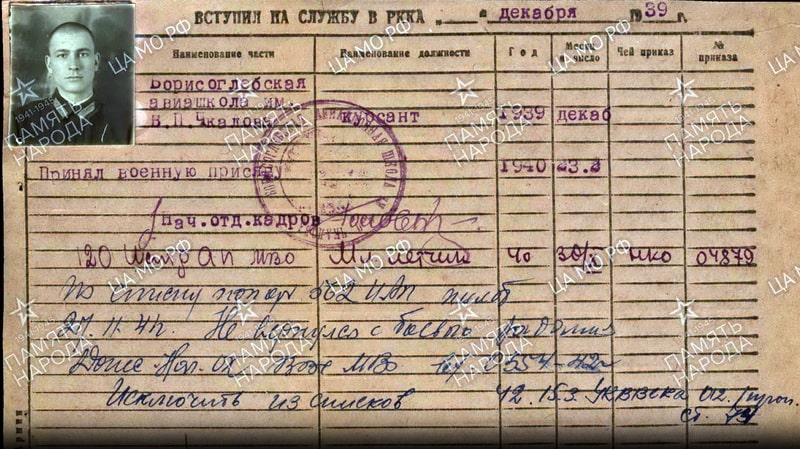 ВСТУПИЛ НА СЛУЖБУ В РККА „ “ декабря 1939 г.
Наименование части Наименование должности Год Месяц число Чей приказ № приказа
Борисоглебская
авиашкола им.
В.П.Чкалова курсант 1939 декаб
Принял военную присягу 1940 23.2
Нач.отд.кадров
120 Истр АП МВО Мл летчик 40 30/ НКО 04879
По списку потерь 562 ИАП пилот
27.11.41г. Не вернулся с боевого задания
МВО 0554-42г
Исключить из списков 42 15.3. УКВВСКА 012.
ст. 74
ПАМЯТЬ НАРОДА
1941-1945
ЦАМО.РФ